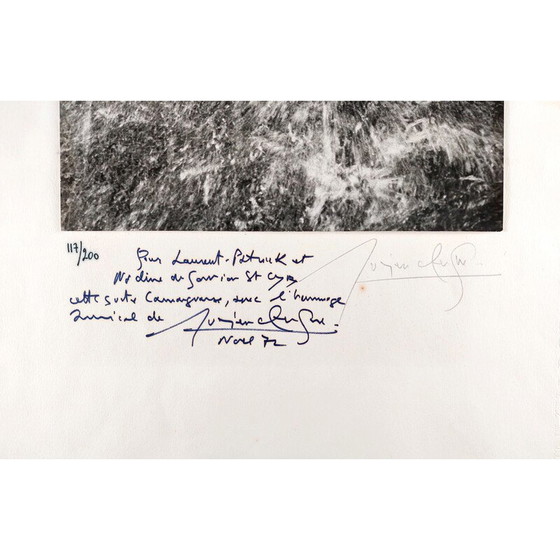 117/200
Pour Laurent-Patrick et
Nadine de Gouvion St Cyr
cette suite Camarguaise, avec l'hommage
amical de Lucien Clergue
Lucien Clergue
Noël 72